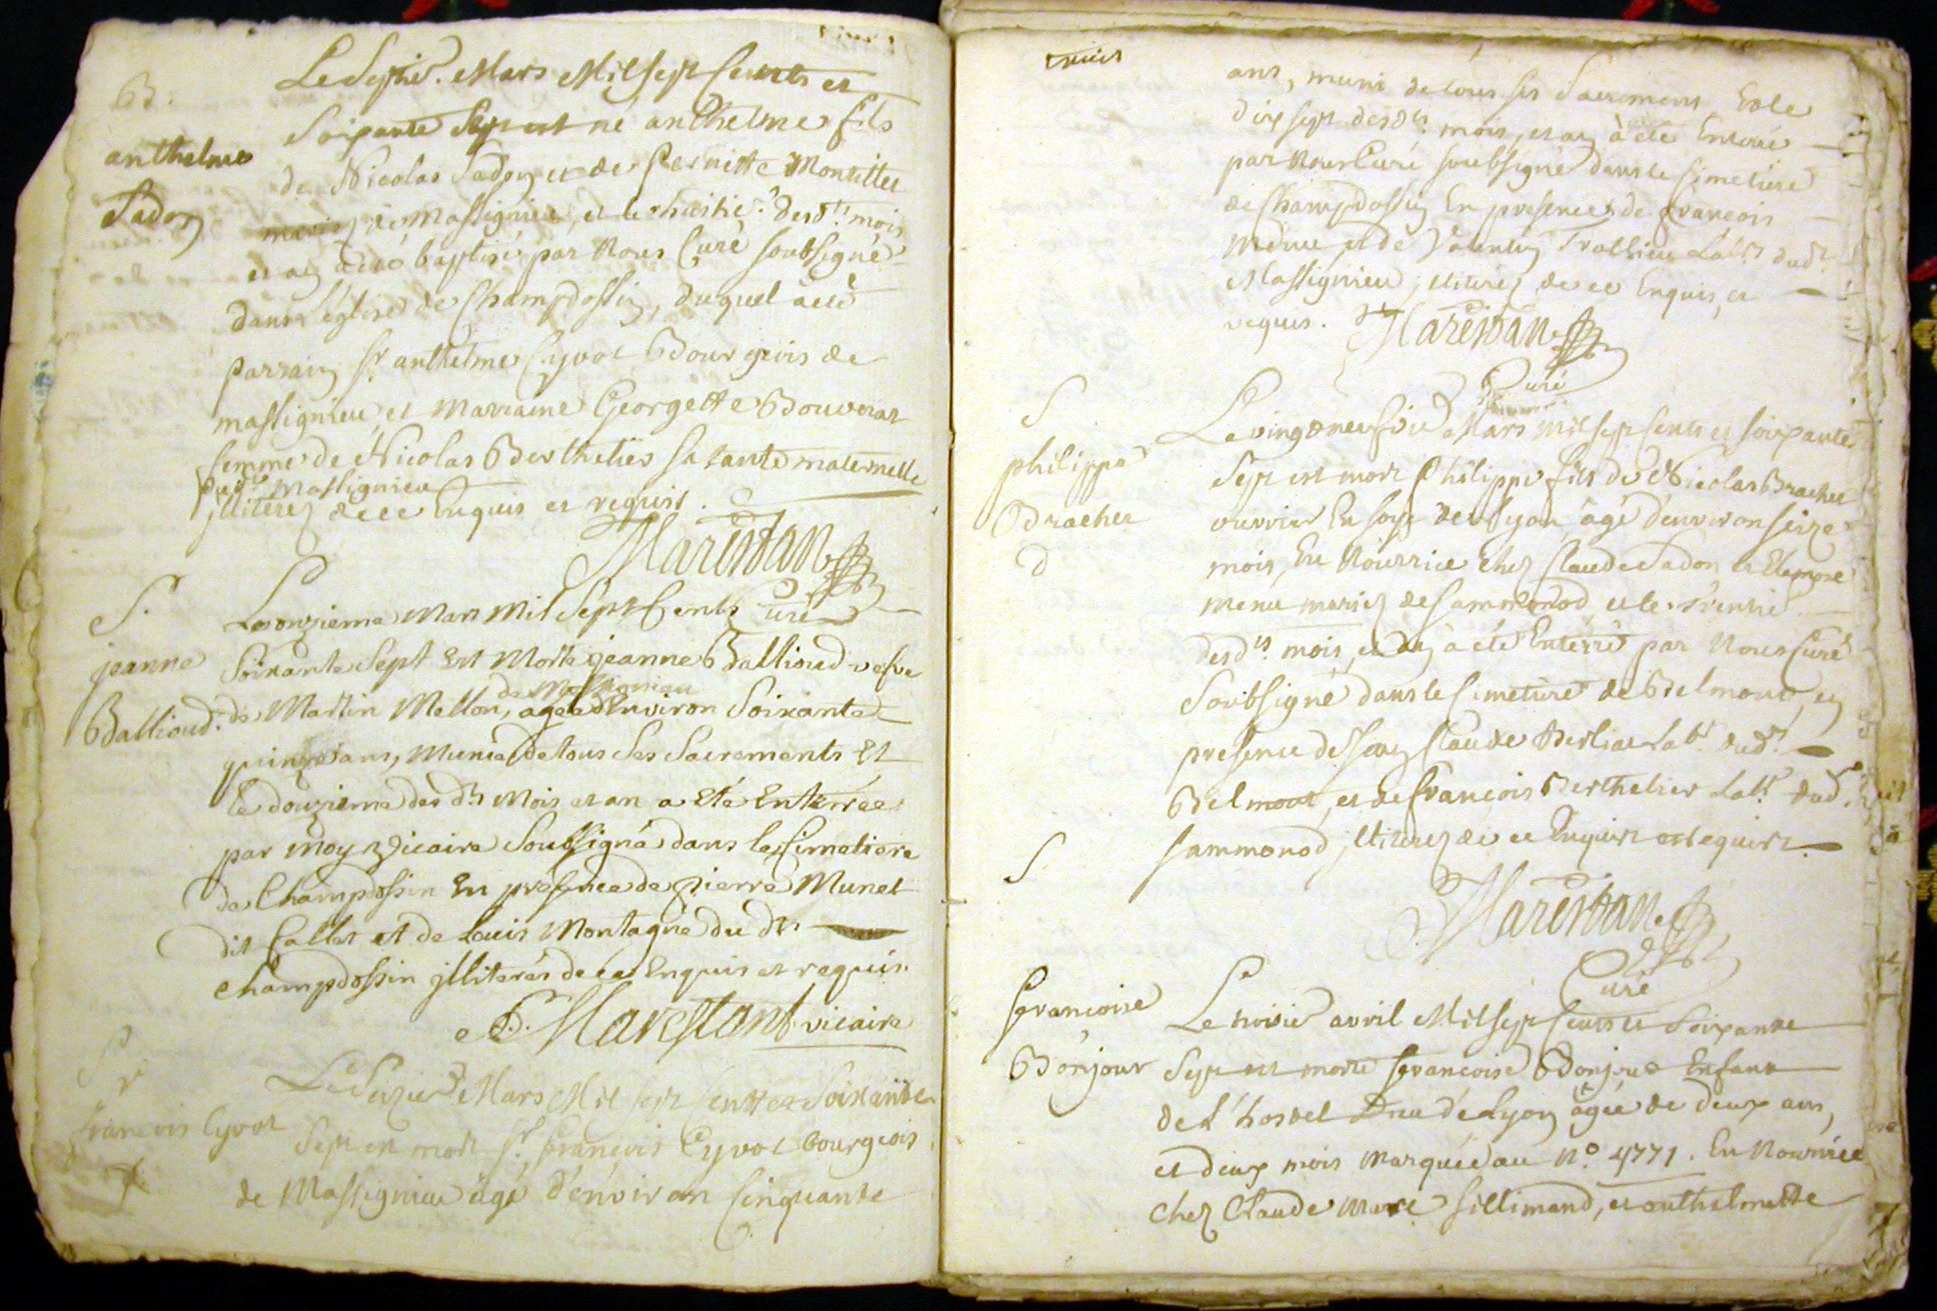 B.
anthelme
Sadon
Le Septie. Mars Mil Sept Cents et
Soixante Sept est né anthelme fils
de Nicolas Sadon et de Pernette Montillet
mariez de Massignieu, et le huitie. desd.ts mois
et an a été baptisé par Nous Curé soubsigné
dans l'église de Champdossin, duquel à eté
parrain Sr. anthelme Cyvot Bourgeois de
massignieu, et Marraine Georgette Bouverat
femme de Nicolas Berthelier sa tante maternelle
dud. Massignieu
illiterez de ce Enquis et requis.
Marestan
Curé
S.
jeanne
Ballioud.
Le onzieme Mars Mil Sept Cents
Soixante Sept Est Morte jeanne Ballioud vefve
de Massignieu
de Martin Mellon, agée d'Environ Soixante
quinze ans, Munie de tous Ses Sacrements Et
le douzieme des dts Mois et an a Eté Enterrée
par moy Vicaire Soussigné dans le Cimetiere
de Champdossin En présence de pierre Munet
dit Callet et de Louis Montagne du dt
Champdossin illiterés de ce Enquis et requis.
Marestant vicaire
S
françois Cyvot
Le Seizie Mars Mil Sept Cents et Soixante
Sept est mort Sr. françois Cyvot bourgeois
de Massignieu âgé d'environ Cinquante
ans, muni de tous ses Sacremens Et le
dix sept desd.ts mois, et an à eté Enterré
par Nous Curé soubsigné dans le Cimetiere
de Champdossin En presence de françois
Mênu et de Trollieu Lab.r dud.
Massignieu, illiterez de ce Enquis, et
requis.
Marestan
Curé
S
philippe
Bracher
d
Le vingt neufvie Mars mil sept Cents et soixante
Sept est mort Philippe fils de Nicolas Bracher
ouvrier En soye de Lyon âgé d'environ seize
mois, En Nourrice Chez Claude Sadon et
Menu mariez de Sammonod et le trentie
desd.ts mois, et an à été Enterré par Nous Curé
Soubsigné dans le Cimetiere de Belmont, en
presence de Claude Berliat Lab.r dud.t
Belmont, et de françois Berthelier Lab.r dud.
Sammonod, illiterez de ce Enquis et requis.
Marestan
Curé
S
françoise
Bonjour
Le avril Mil sept Cents et Soixante
Sept est morte françoise Bonjour Enfant
de L'hostel Dieu de Lyon âgée de deux ans,
et deux mois marquée au No. 4771. En Nourrice
chez Claude Marie Sillimand, et anthelmette